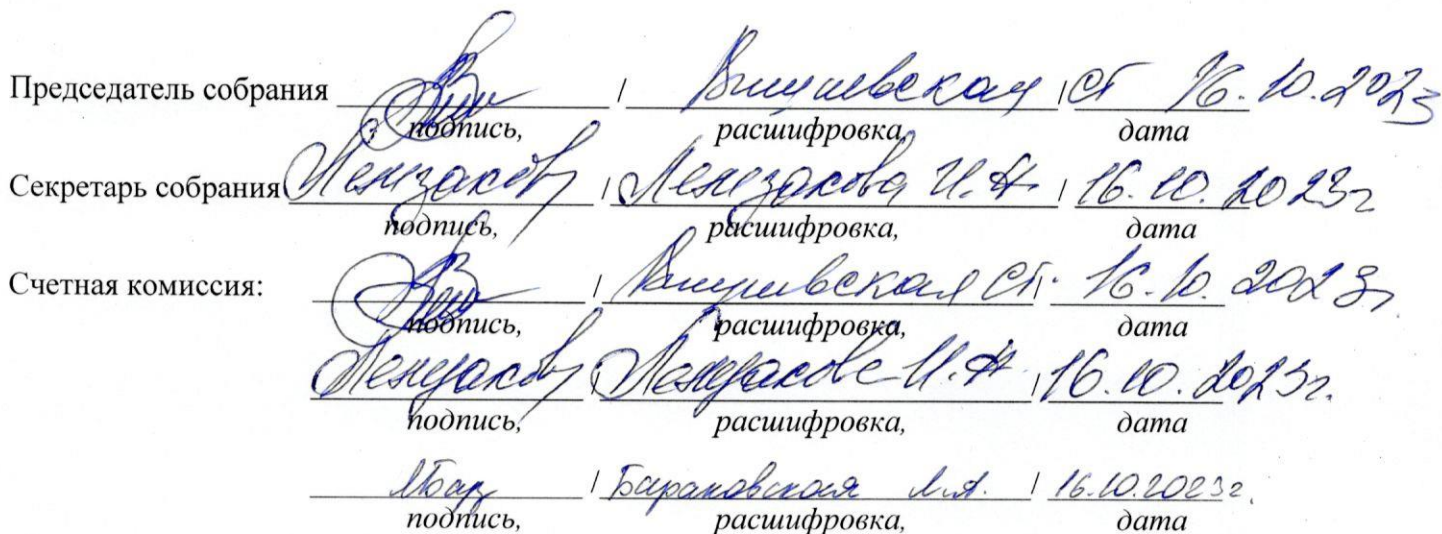 Председатель собрания / Вишневская СТ / 16.10.2023
подпись, расшифровка, дата
Секретарь собрания / И.А. / 16.10.2023г
подпись, расшифровка, дата
Счетная комиссия: / Вишневская СТ. / 16.10.2023г.
подпись, расшифровка, дата
/ И.А. / 16.10.2023г.
подпись, расшифровка, дата
/ Барановская Л.А. / 16.10.2023г.
подпись, расшифровка, дата